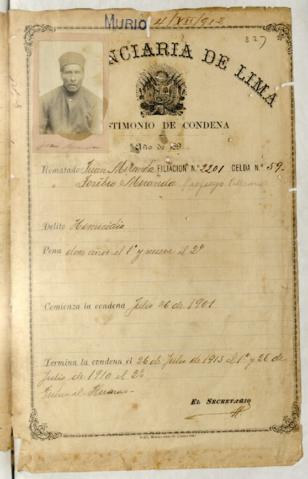 MURIO 21/XII/912
327
NCIARIA DE LIMA
STIMONIO DE CONDENA
Año de 19
Rematado Juan Miranda FILIACION N.º 2201 CELDA N.º 59.
Toribio Miranda
Delito Homicidio
Pena doce años el 1º y nueve el 2º
Comienza la condena Julio 26 de 1901.
Termina la condena el 26 de Julio de 1913 el 1º y 26 de
Julio de 1910 el 2º
Tribunal Huaraz
EL SECRETARIO